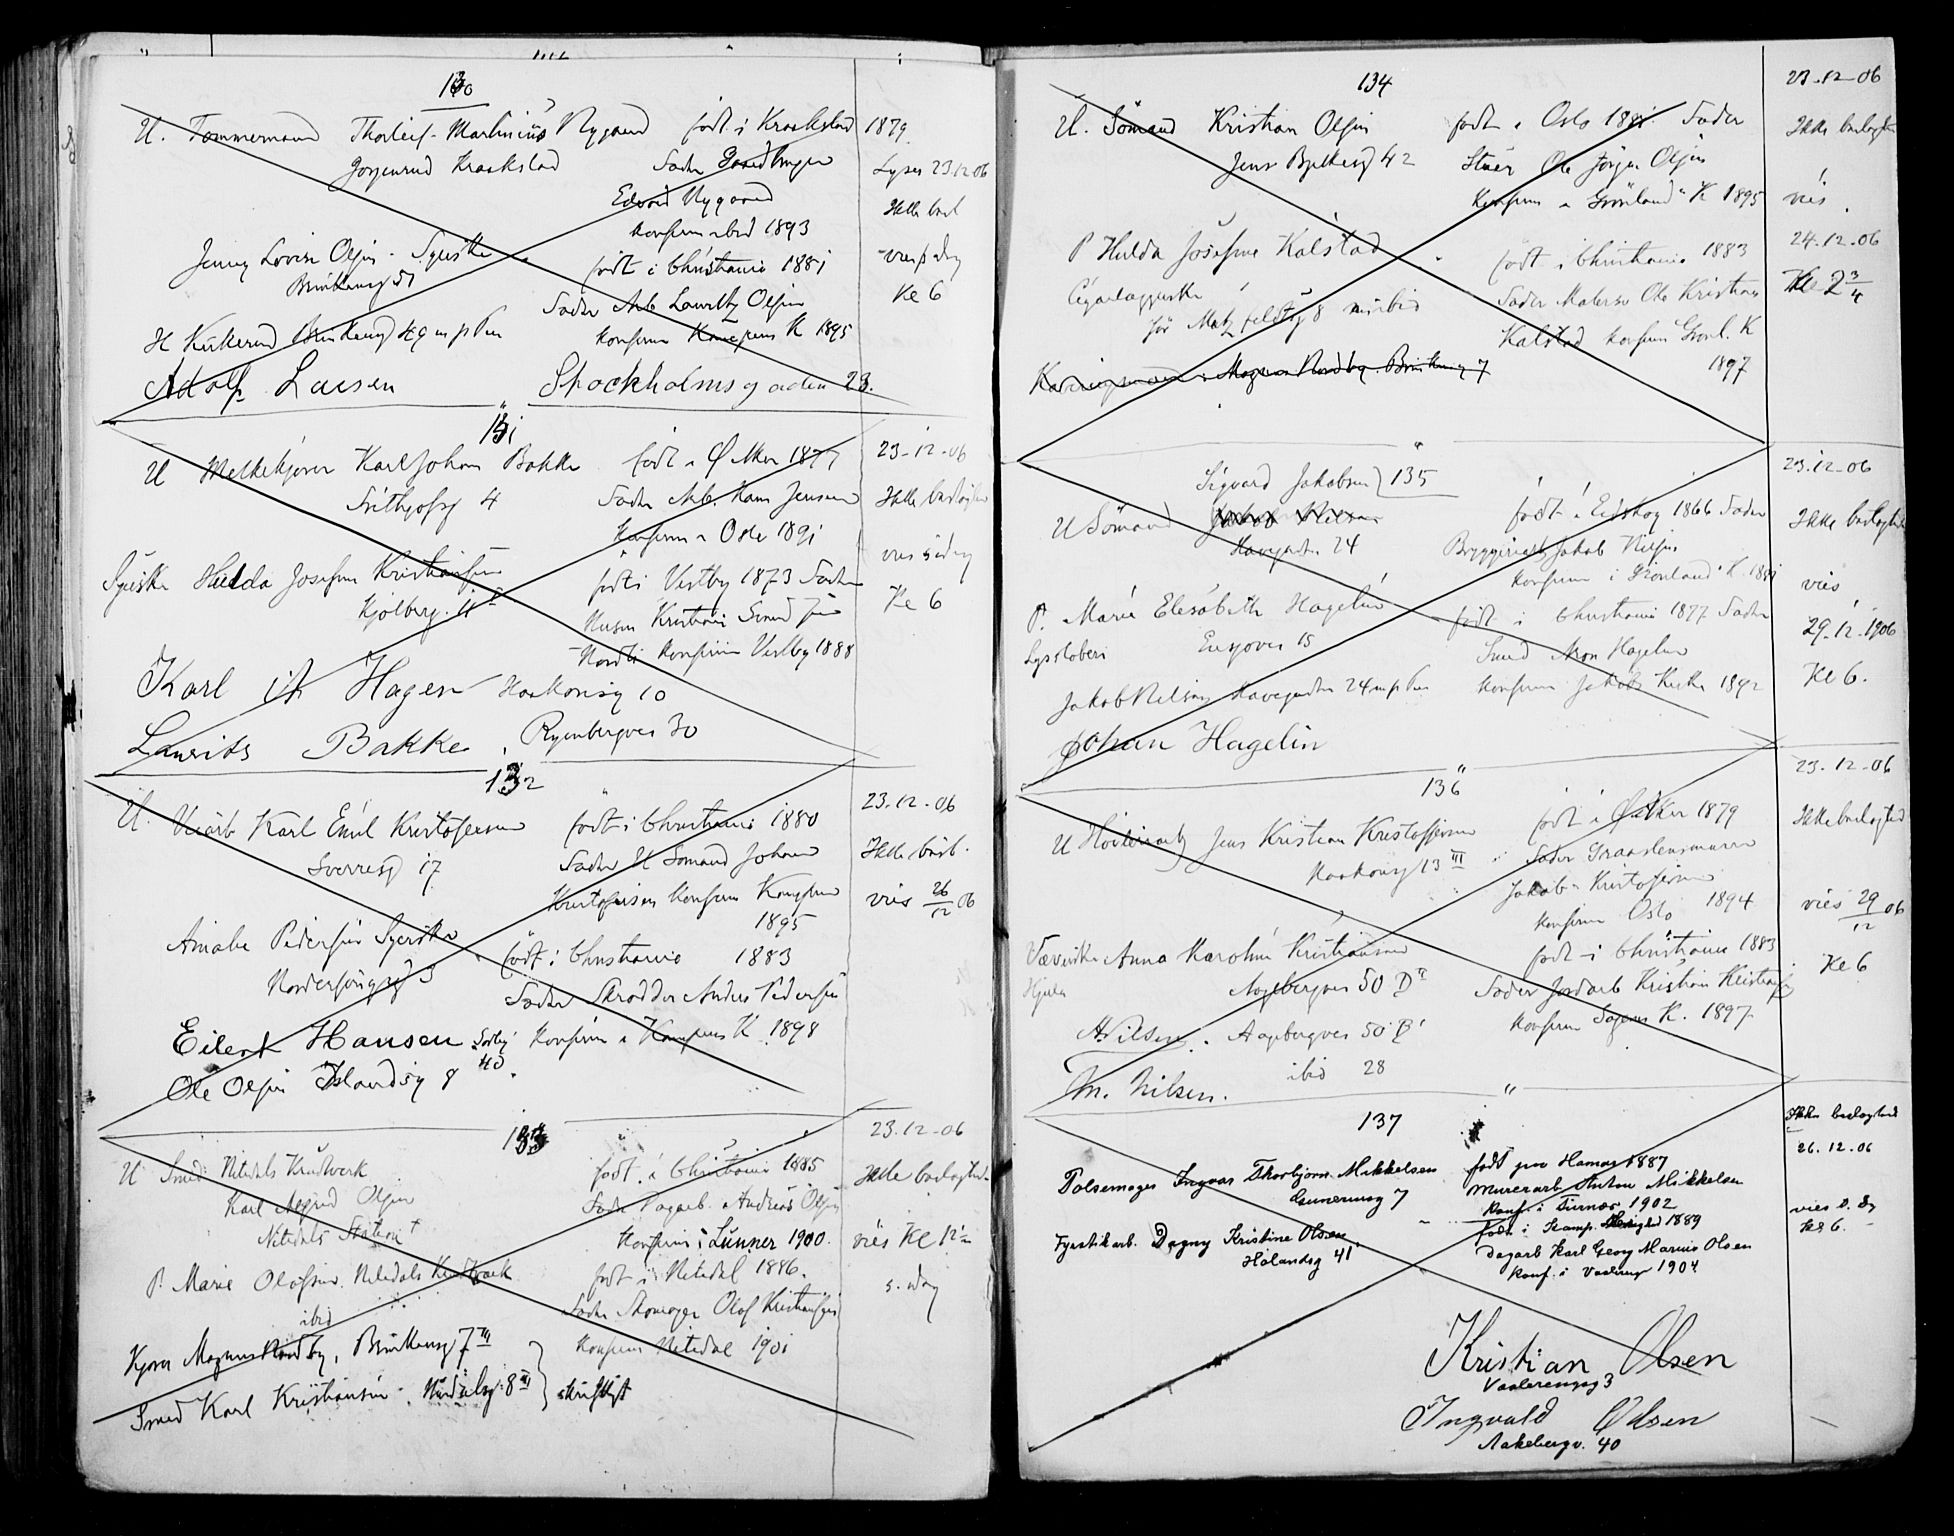 130
U. Tømmermand Thorleif Martinius Nygaard født i Kraakstad 1879
Gorgenrud Kraakstad Fader Gaardbruger Lyses 23.12.06
Edvard Nygaard Ikke besl
konfirm ibid 1893
Jenny Lovise Olsen - Syerske født i Christiania 1881 vies s dag
Brinkensg 51 Kl 6
Fader Arb Lauritz Olsen
H Kirkerud Brinkensg 49 konfirm Kampens K 1895
Adolf Larsen Stockholmsgaden 23.
131
U Melkekjører Karl Johan Bakke født i Ø Aker 1877 23-12-06
Frithjofsg 4 Fader Arb. Hans Jensen Ikke beslægtet
Konfirm i Oslo 1891
Syerske Hulda Josefine Kristiansen født i Vestby 1873 Fader vies s dag
Kjølberg. Kl 6
Husm Kristian Svend
Nordli konfirm Vestby 1888
Karl A Hagen Haakonsg 10
Laurits Bakke. Ryenbergvei 30
132
U. Karl Emil Kristofersen født i Christiania 1880 23.12-06
Sverresg 17 Fader U Sømand Johan Ikke besl.
Kristofersen Konfirm Kampens vies 26/12 06
1895
Amalie Pedersen Syerske født i Christiania 1883
Nordersøng 3 Fader Skrædder Anders Pedersen
Eilert Hansen Sørlig 40 Konfirm i Kampens K 1898
Ole Olsen Islandsg 8
133
23.12-06
U Smed Nitedals Krudtverk født i Christiania 1885 Ikke beslægted
Karl Olsen Fader Dagarb. Andreas Olsen
Nitedals Station Konfirm i Lunner 1900. vies Kl 12½
P. Marie Olafsen Nitedals Krudtværk født i Nitedal 1886. s. dag
ibid Fader Skomager Olaf Kristiansen
Kjører Magnus Nordby, Brinkensg 7 III Konfirm Nitedal 1901
Smed Karl Kristiansen. 8 III skriftligt
134
23-12-06
U. Sømand Kristian Olsen født i Oslo 1881 Fader Ikke beslægtet
Jens Bjelkesg 42 Stuer Ole Jørgen Olsen
Konfirm i Grønland K 1895 vies
P Hulda Josefine Kalstad født i Christiania 1883 24-12-06
Cigarlagerske Fader Malersv Ole Kristian Kl 2 3/4
Kalstad konfirm Grønl. K
Magnus Nordby. Brinkensg 7 1897
Sigvard Jakobsen 135
23.12-06
U Sømand Jakob Nilsen født i Eidskog 1866 Fader Ikke beslægted
Havegaden 24 Bryggeriarb Jakob Nilsen
konfirm i Grønland K. 1881 vies
P. Marie Elisabeth Hagelin født i Christiania 1877 Fader
Ensjøvei 15 29-12-1906
Smed Hagelin
Jakob Nilsen Havegaden 24 konfirm Jakobs Kirke 1892 Kl 6.
Johan Hagelin
136
23.12-06
U Høvleriarb Jens Kristian Kristoffersen født i Ø Aker 1879 Ikke beslægted
Haakonsg 13 III Fader Graastensmurer
Jakob Kristofersen
konfirm Oslo 1894 vies 29/12 06
Væverske Anna Karoline Kristiansen født i Christiania 1883
Hjula Aagebergvei 50 D II Fader Jordarb Kristian Kristiansen Kl 6
Konfirm Sagens K. 1897
A Nilsen. Aagebergvei 50 B I
ibid 28
Th. Nilsen.
137
Ikke beslægted
26.12.06
Pølsemager Ingvar Thorbjørn Mikkelsen født paa Hamar 1887
Gunerusg 7 Murerarb Anton Mikkelsen
Konf. i Furnæs 1902 vies s. dg
Fyrstikarb. Dagny Kristine Olsen født i Kamp. Menighed 1889 kl 6.
Hølandsg 41. Dagarb Karl Georg Marius Olsen
Konf. i Vaalereng 1904
Kristian Olsen
Vaalerengsg 3
Ingvald Olsen
Aakebergv. 40